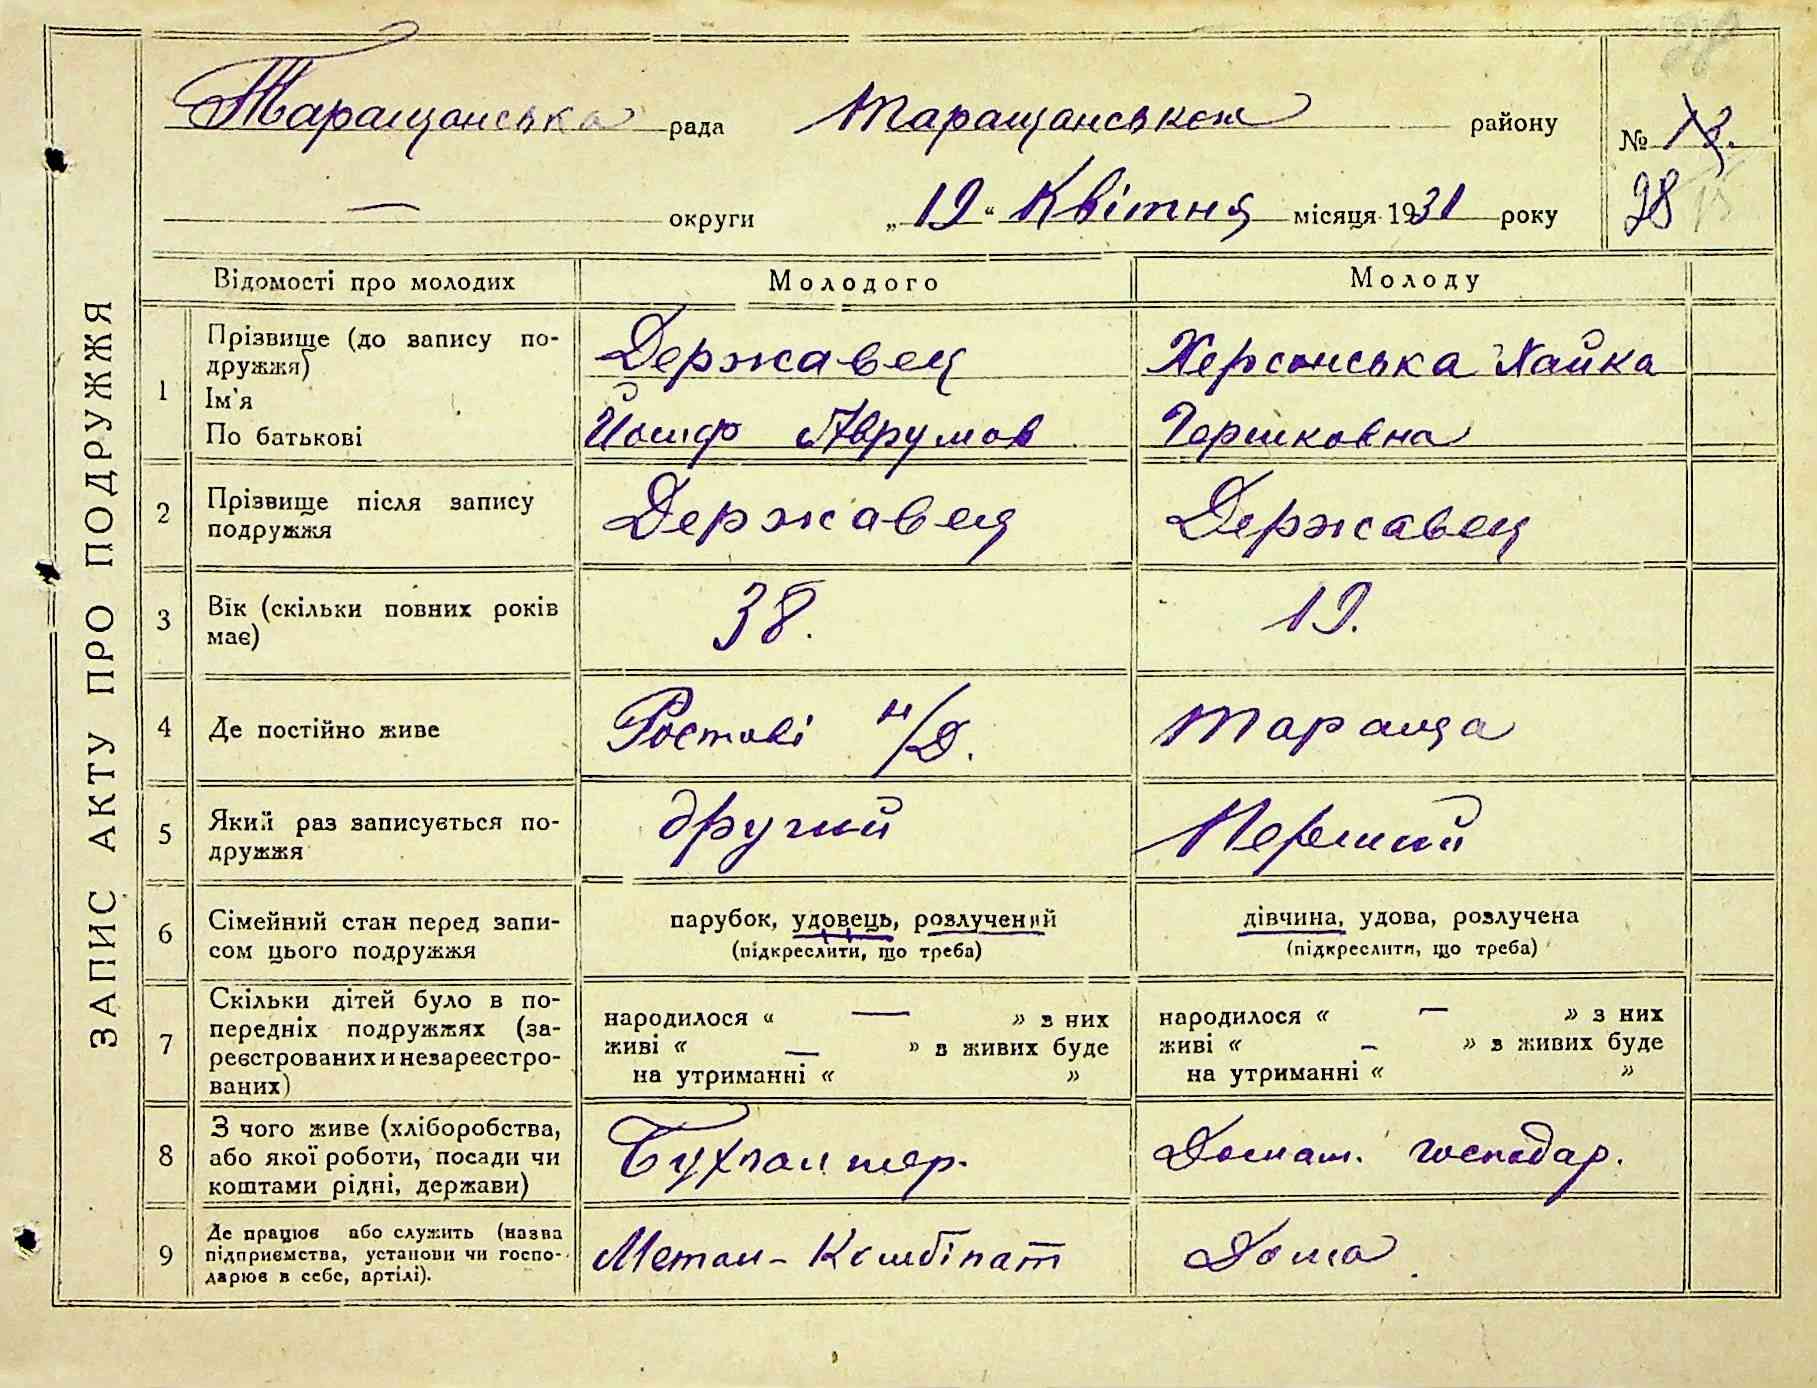 ЗАПИС АКТУ ПРО ПОДРУЖЖЯ
Таращанська рада Таращанського району № 13.
— округи „19“ Квітня місяця 1931 року 28
Відомості про молодих Молодого Молоду
1 Прізвище (до запису по-
дружжя)
Ім'я
По батькові
Державец
Йосиф Аврумов
Херсонська Хайка
Гершковна
2 Прізвище після запису
подружжя
Державец
Державец
3 Вік (скільки повних років
має)
38.
19.
4 Де постійно живе
Ростові н/Д.
Тараща
5 Який раз записується по-
дружжя
другий
Перший
6 Сімейний стан перед запи-
сом цього подружжя
парубок, удовець, розлучений
(підкреслити, що треба)
дівчина, удова, розлучена
(підкреслити, що треба)
7 Скільки дітей було в по-
передніх подружжях (за-
реєстрованих и незареєстро-
ваних)
народилося « — » з них
живі « — » в живих буде
на утриманні « »
народилося « — » з них
живі « – » в живих буде
на утриманні « »
8 З чого живе (хліборобства,
або якої роботи, посади чи
коштами рідні, держави)
Бухгалтер.
Домаш. господар.
9 Де працює або служить (назва
підприємства, установи чи госпо-
дарює в себе, артілі).
Метал-Комбінат
Дома